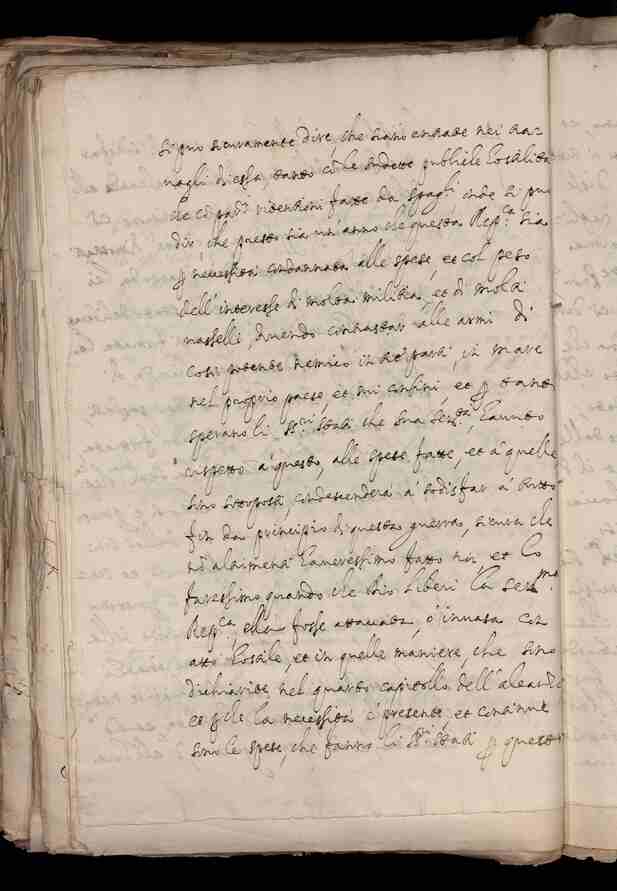 si può sicuramente dire, che siano entrate nei tra-
uagli di essa, tanto cõ le dette publiche hostilità
che cõ
dir, che questo sia un' anno che questa Repca. sia
necessità condannata alle spese, et col peso
dell' interesse di molta militia, et di molti
uasselli, hauendo contrastar alle armi di
così potente nemico in parti, in mare
nel proprio paese, et sui confini, et p tanto
sperano li SSri. Stati che Sua Serta., hauuto
rispetto a questo, alle spese fatte, et a quelle
sino sottoposti, condescenderà a sodisfar a tutto
fin da principio di questa guerra, sicura che
nõ altrimenti haueressimo fatto noi, et lo
faressimo quando che Dio liberi la Serma.
Repca. ella fosse attaccata, o inuasa con
atto hostile, et in quelle maniere, che sino
dichiarite nel quarto capitollo dell' aleanza
et che la necessità è presente, et continue
sino le spese, che fanno li SSri. Stati p questo